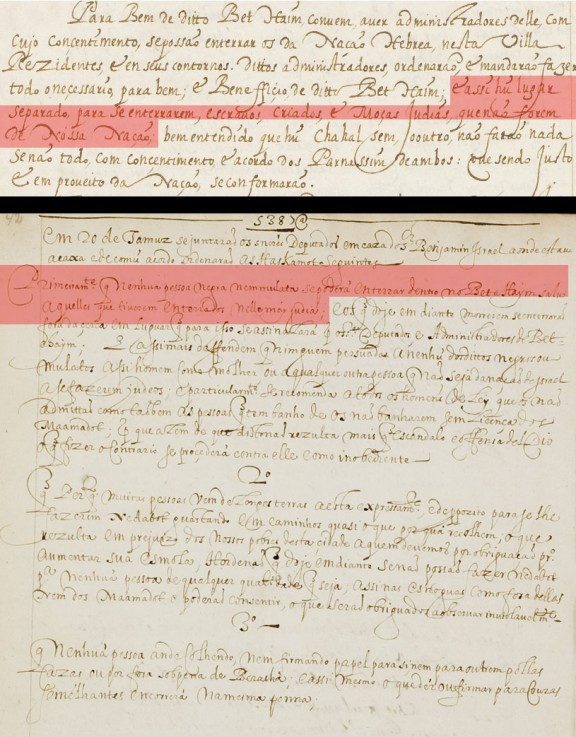 Para Bem de ditto Bet Haim, convem, aver administradores delle, com
Cujo Concentimento, sepossão enterrar os da Nação Hebrea, nesta Villa
Rezidentes, e en seus contornos. Dittos administradores, ordenarão, e mandarão fazer
todo o necessario, para bem; e Beneffiçio de ditto Bet Haim; e assi hũ lugar
separado, para se enterrarem, escravos, Criados, e Moças Judias, que não forem
de Nossa Nação, bem entendido que hũ Chahal, sem, o outro, não farão nada
Senão todo, com Concentimento, e acordo dos Parnassim de ambos: e de sendo Justo
e em proveito da Nação, se conformarão.
538)
em 20 de Tamuz se juntarão os Deputados em caza do Binjamin Israel aonde
acordo ordenarão as Haskamot seguintes
Primeiramte q Nenhũa pessoa negra nem mulata se poderá enterrar dentro no Bet Haym, salvo
aquelles que tiverem enterrados nelle mãy judia; doje em diante morrerem
lugar q para isso se assinalará os Deputados e Administradores de Bet
haim; deffendem q ninguem persuada a nenhũ dos dittos negros ou
mulatos assi homem como molher ou a qualquer outra pessoa q não seja da nação de Israel
a se fazerem judeos; e particularmte recomenda a todos os homens de Ley que os não
admitão como tãobem as pessoas q tem banho de os não banharem sem licença dos
Maamad; q alem do que disto nos rezulta mais q escandalo e offensa del Dio
o q fizer o contrario se procederá contra elle como inobediente.
2o
Por q muitas pessoas Vem de longes terras a esta expressamte, e de propozito para se lhe
fazerem Nedabot gastando em caminhos quasi o que por qua recolhem, o que
rezulta em prejuizo dos Nossos pobres desta cidade a quem devemos por obriguação
aumentar sua esmola, q doje em diante senão possão fazer nedabot
pa Nenhũa pessoa de qualquer qualidade q seja, assi nas esnoguas como fora dellas
nem dos Maamad o poderá consentir, o que aserá obriguado a observar inviolavelmte.
3o
q Nenhũa pessoa ande colhendo, nem firmando papel para si nem para outrem pellas
cazas ou por fora sob pena de Berahá; e assi mesmo o que der ou firmar para couzas
semelhantes encorrerá na mesma penna.